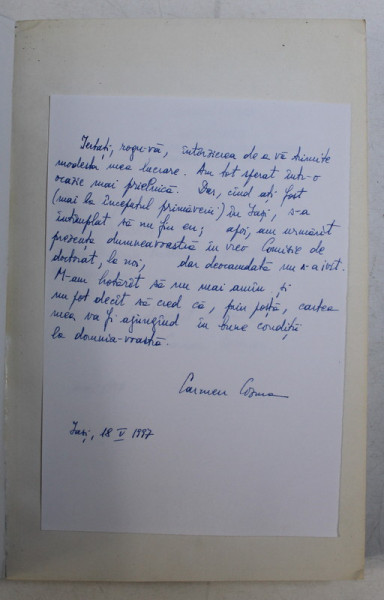 Iertați, rogu-vă, întârzierea de a vă trimite
modesta mea lucrare. Am tot sperat într-o
ocazie mai prielnică. Dar, cînd ați fost
(mai la începutul primăverii) în Iași, s-a
întîmplat să nu fiu eu; apoi, am urmărit
prezența dumneavoastră în vreo Comisie de
doctorat, la noi, dar deocamdată nu s-a ivit.
M-am hotărît să nu mai amîn și
nu pot decît să cred că, prin poștă, cartea
mea va fi ajungînd în bune condiții
la domnia-voastră.
Carmen Cozma
Iași, 18 V 1997